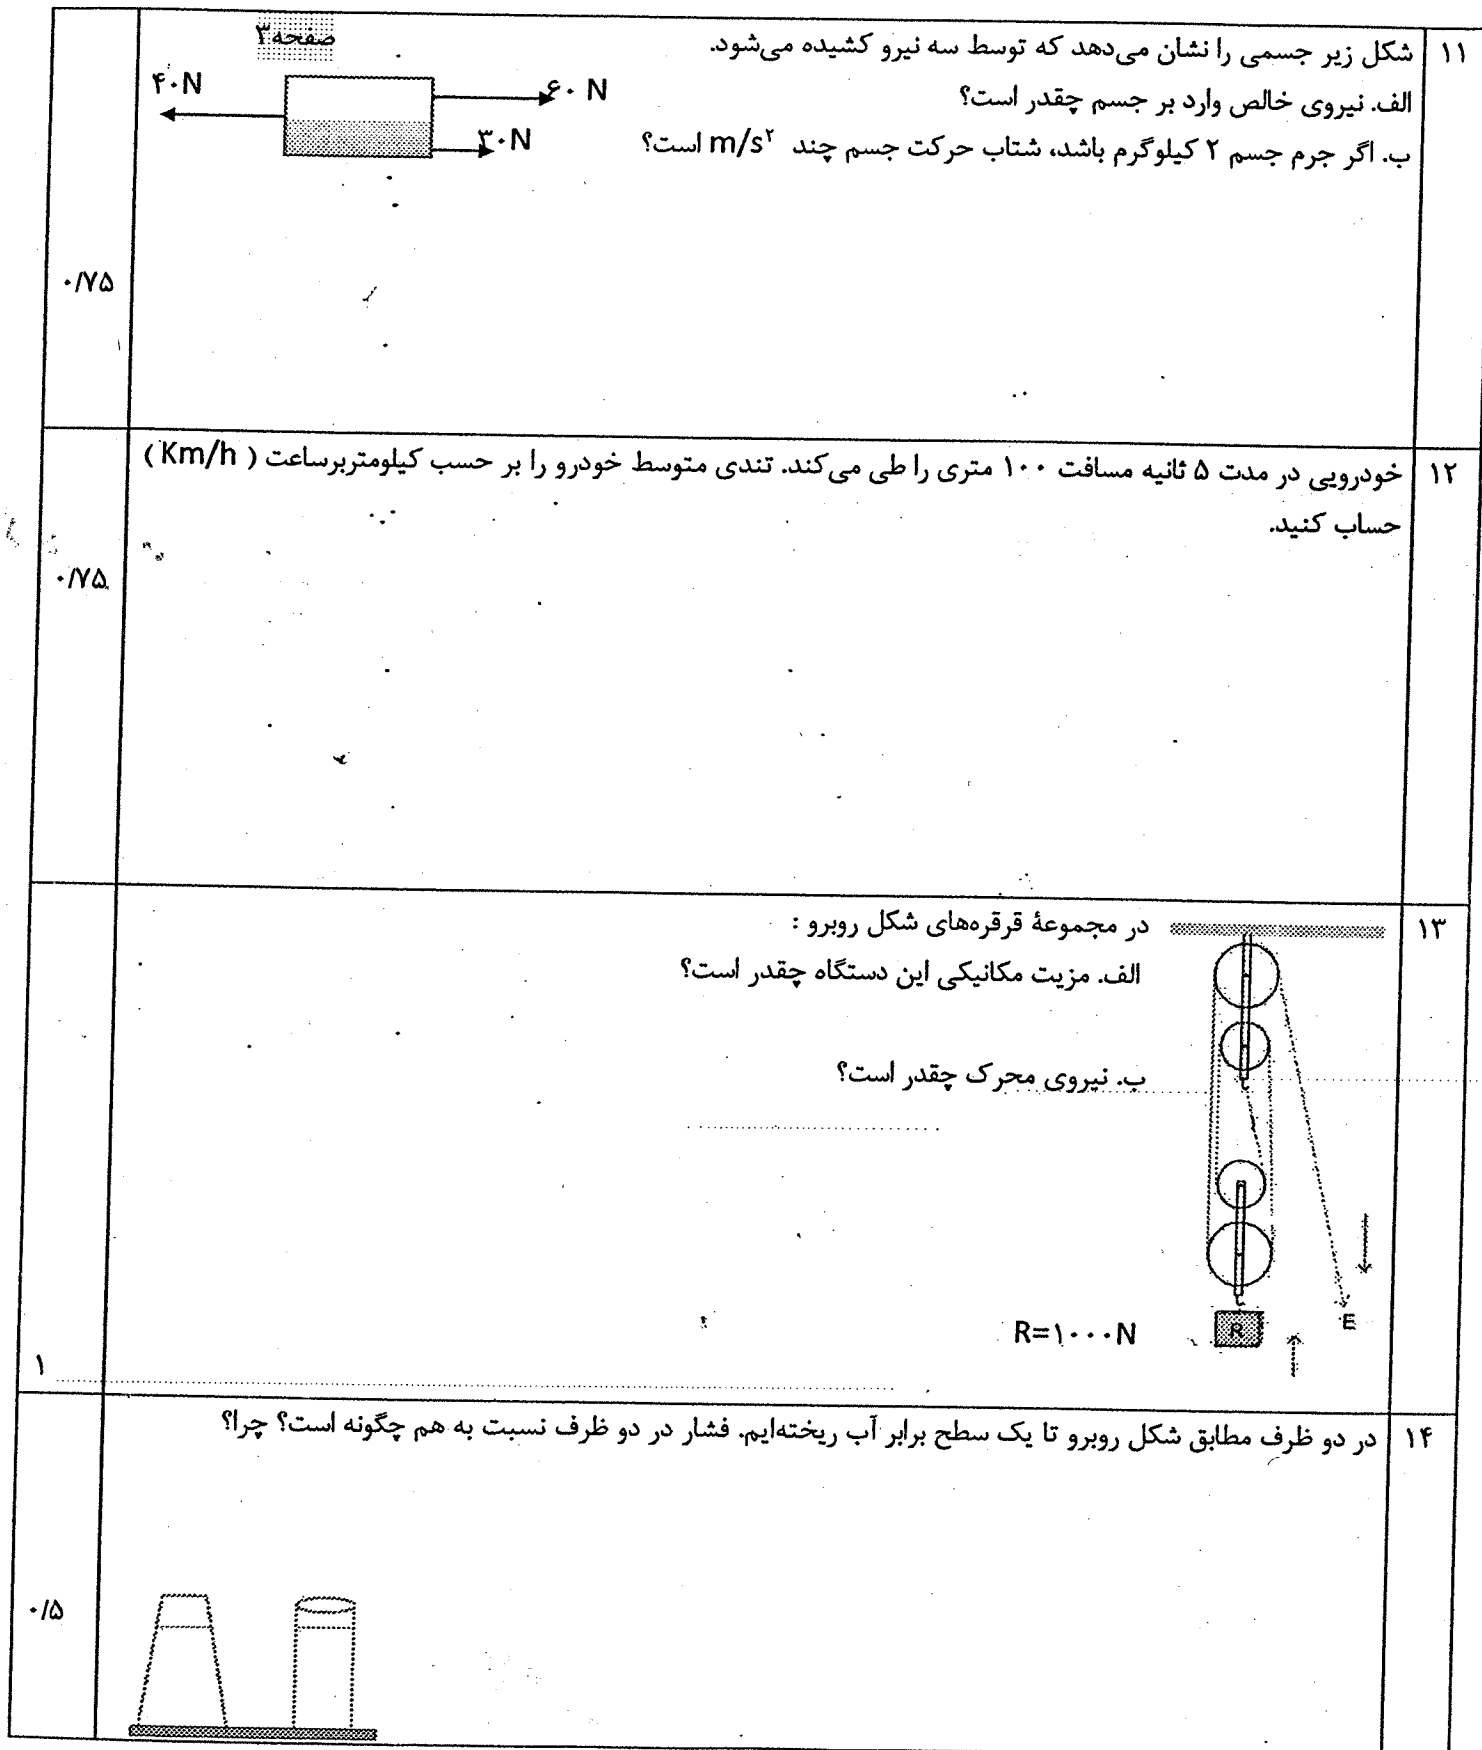 صفحه۳
۱۱
شکل زیر جسمی را نشان می‌دهد که توسط سه نیرو کشیده می‌شود.
الف. نیروی خالص وارد بر جسم چقدر است؟
ب. اگر جرم جسم ۲ کیلوگرم باشد، شتاب حرکت جسم چند m/s² است؟
۴۰N
۶۰ N
۳۰N
۰/۷۵
۱۲
خودرویی در مدت ۵ ثانیه مسافت ۱۰۰ متری را طی می‌کند. تندی متوسط خودرو را بر حسب کیلومتربرساعت ( Km/h )
حساب کنید.
۰/۷۵
۱۳
در مجموعهٔ قرقره‌های شکل روبرو :
الف. مزیت مکانیکی این دستگاه چقدر است؟
ب. نیروی محرک چقدر است؟
R=۱۰۰۰N
R
E
۱
۱۴
در دو ظرف مطابق شکل روبرو تا یک سطح برابر آب ریخته‌ایم. فشار در دو ظرف نسبت به هم چگونه است؟ چرا؟
۰/۵